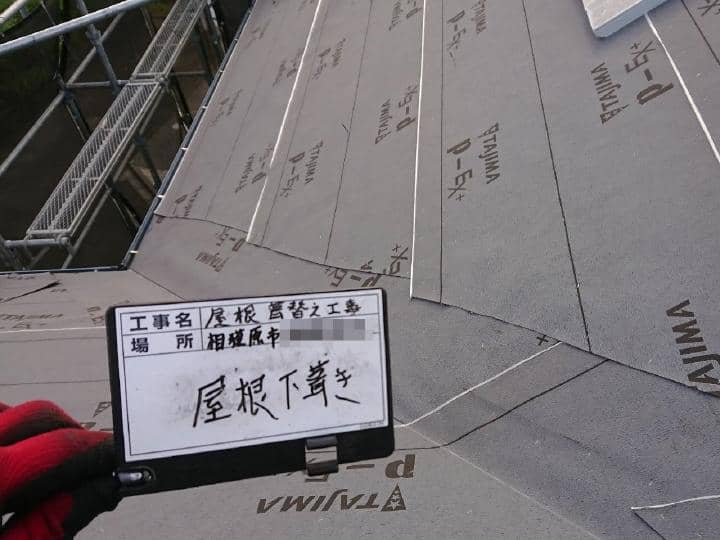 工事名 屋根葺替え工事
場所 相模原市
屋根下葺き
TAJIMA
P-EX+
TAJIMA
P-EX+
TAJIMA
P-EX+
TAJIMA
P-EX+
TAJIMA
P-EX+
AJIMA
TAJIMA
P-E